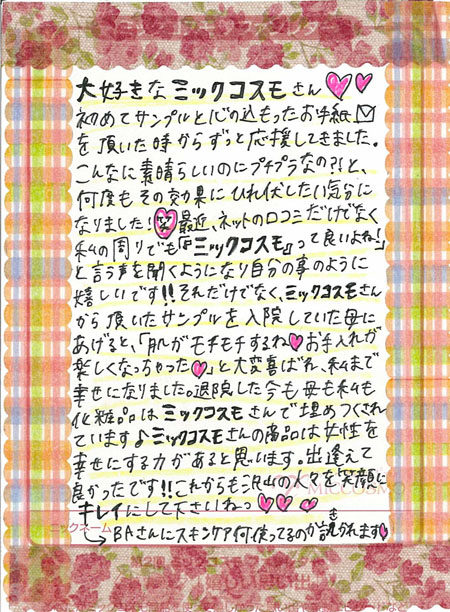 大好きなミックコスモさん
初めてサンプルと心の込もったお手紙
を頂いた時からずっと応援してきました。
こんなに素晴らしいのにプチプラなの?!と、
何度もその効果にひれ伏したい気分に
なりました!笑最近、ネットの口コミだけでなく
私の周りでも『ミックコスモ』って良いよね!
と言う声を聞くようになり自分の事のように
嬉しいです!!それだけでなく、ミックコスモさん
から頂いたサンプルを入院していた母に
あげると、「肌がモチモチするねお手入れが
楽しくなっちゃった」と大変喜ばれ、私まで
幸せになりました。退院した今も母も私も
化粧品はミックコスモさんで埋めつくされ
ています♪ミックコスモさんの商品は女性を
幸せにする力があると思います。出逢えて
良かったです!!これからも沢山の人々を笑顔に
MICCOSMO
キレイにして下さいねっ
ニックネーム
→BAさんにスキンケア何使ってるのか訊かれます
き